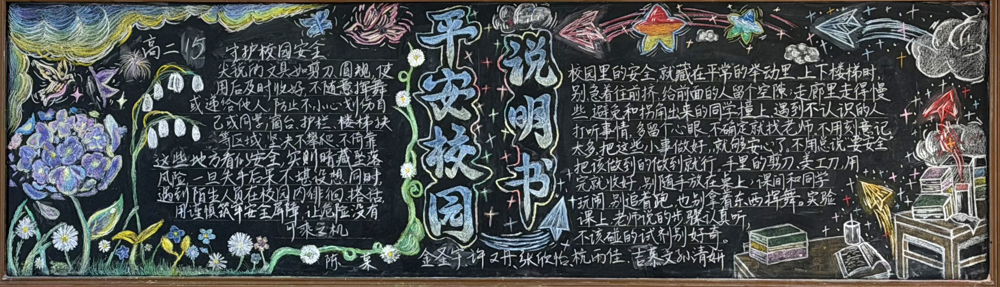 高二15
守护校园安全
尖锐的文具如剪刀、圆规，使
用后及时收好，不随意挥舞
或递给他人，防止不小心划伤自
己或同学；窗台、护栏、楼梯扶
手等区域，坚决不攀爬、不倚靠
这些地方看似安全，实则暗藏坠落
风险，一旦失手后果不堪设想。同时，
遇到陌生人员在校园内徘徊、搭话
用谨慎筑牢安全屏障，让危险没有
可乘之机
平安校园
说明书
校园里的安全，就藏在平常的举动里。上下楼梯时，
别急着往前挤，给前面的人留个空隙；走廊里走得慢
些，避免和拐角出来的同学撞上；遇到不认识的人
打听事情，多留个心眼，不确定就找老师，不用刻意记
太多，把这些小事做好，就够安心了。不用总说要安全
把该做到的做到就行，手里的剪刀、美工刀，用
完就收好，别随手放在桌上；课间和同学
玩闹，别追着跑，也别拿着东西挥舞，实验
课上，老师说的步骤认真听，
不该碰的试剂别好奇。